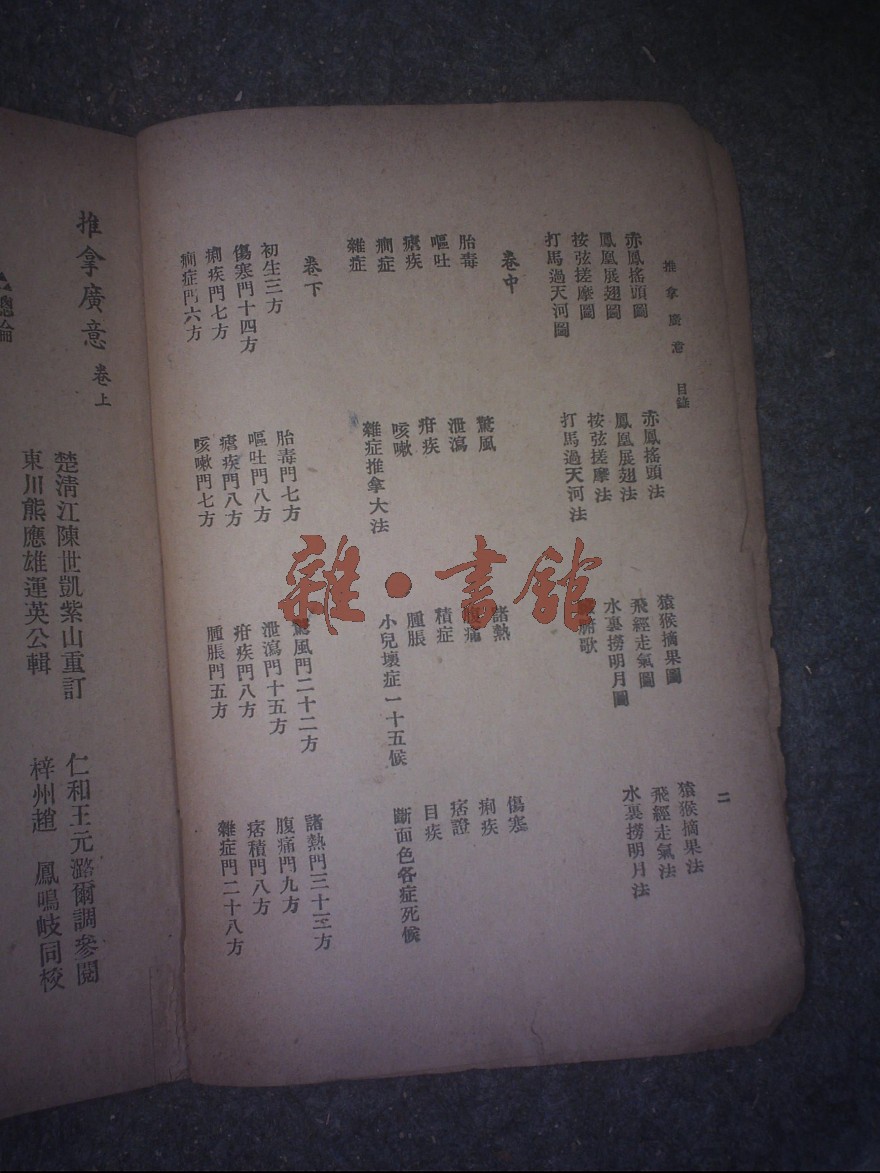 推拿廣意 目錄
二
赤鳳搖頭圖 赤鳳搖頭法 猿猴摘果圖 猿猴摘果法
鳳凰展翅圖 鳳凰展翅法 飛經走氣圖 飛經走氣法
按弦搓摩圖 按弦搓摩法 水裏撈明月圖 水裏撈明月法
打馬過天河圖 打馬過天河法 腑歌
卷中
胎毒 驚風 諸熱 傷寒
嘔吐 泄瀉 腹痛 痢疾
瘧疾 疳疾 積症 痞證
癇症 咳嗽 腫脹 目疾
雜症 雜症推拿大法 小兒壞症一十五候 斷面色各症死候
卷下
初生三方 胎毒門七方 驚風門二十二方 諸熱門三十三方
傷寒門十四方 嘔吐門八方 泄瀉門十五方 腹痛門九方
痢疾門七方 瘧疾門八方 疳疾門八方 痞積門八方
癇症門六方 咳嗽門七方 腫脹門五方 雜症門二十八方
推拿廣意 卷上
楚淸江陳世凱紫山重訂 仁和王元潞爾調參閱
東川熊應雄運英公輯 梓州趙 鳳鳴岐同校
總論
雜·書館